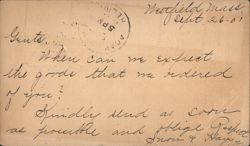 Westfield, Mass.
Sept 26-01
Gents,
When can we expect
the goods that we ordered
of you?
Kindly send as soon
as possible and oblige Respect
Snow &